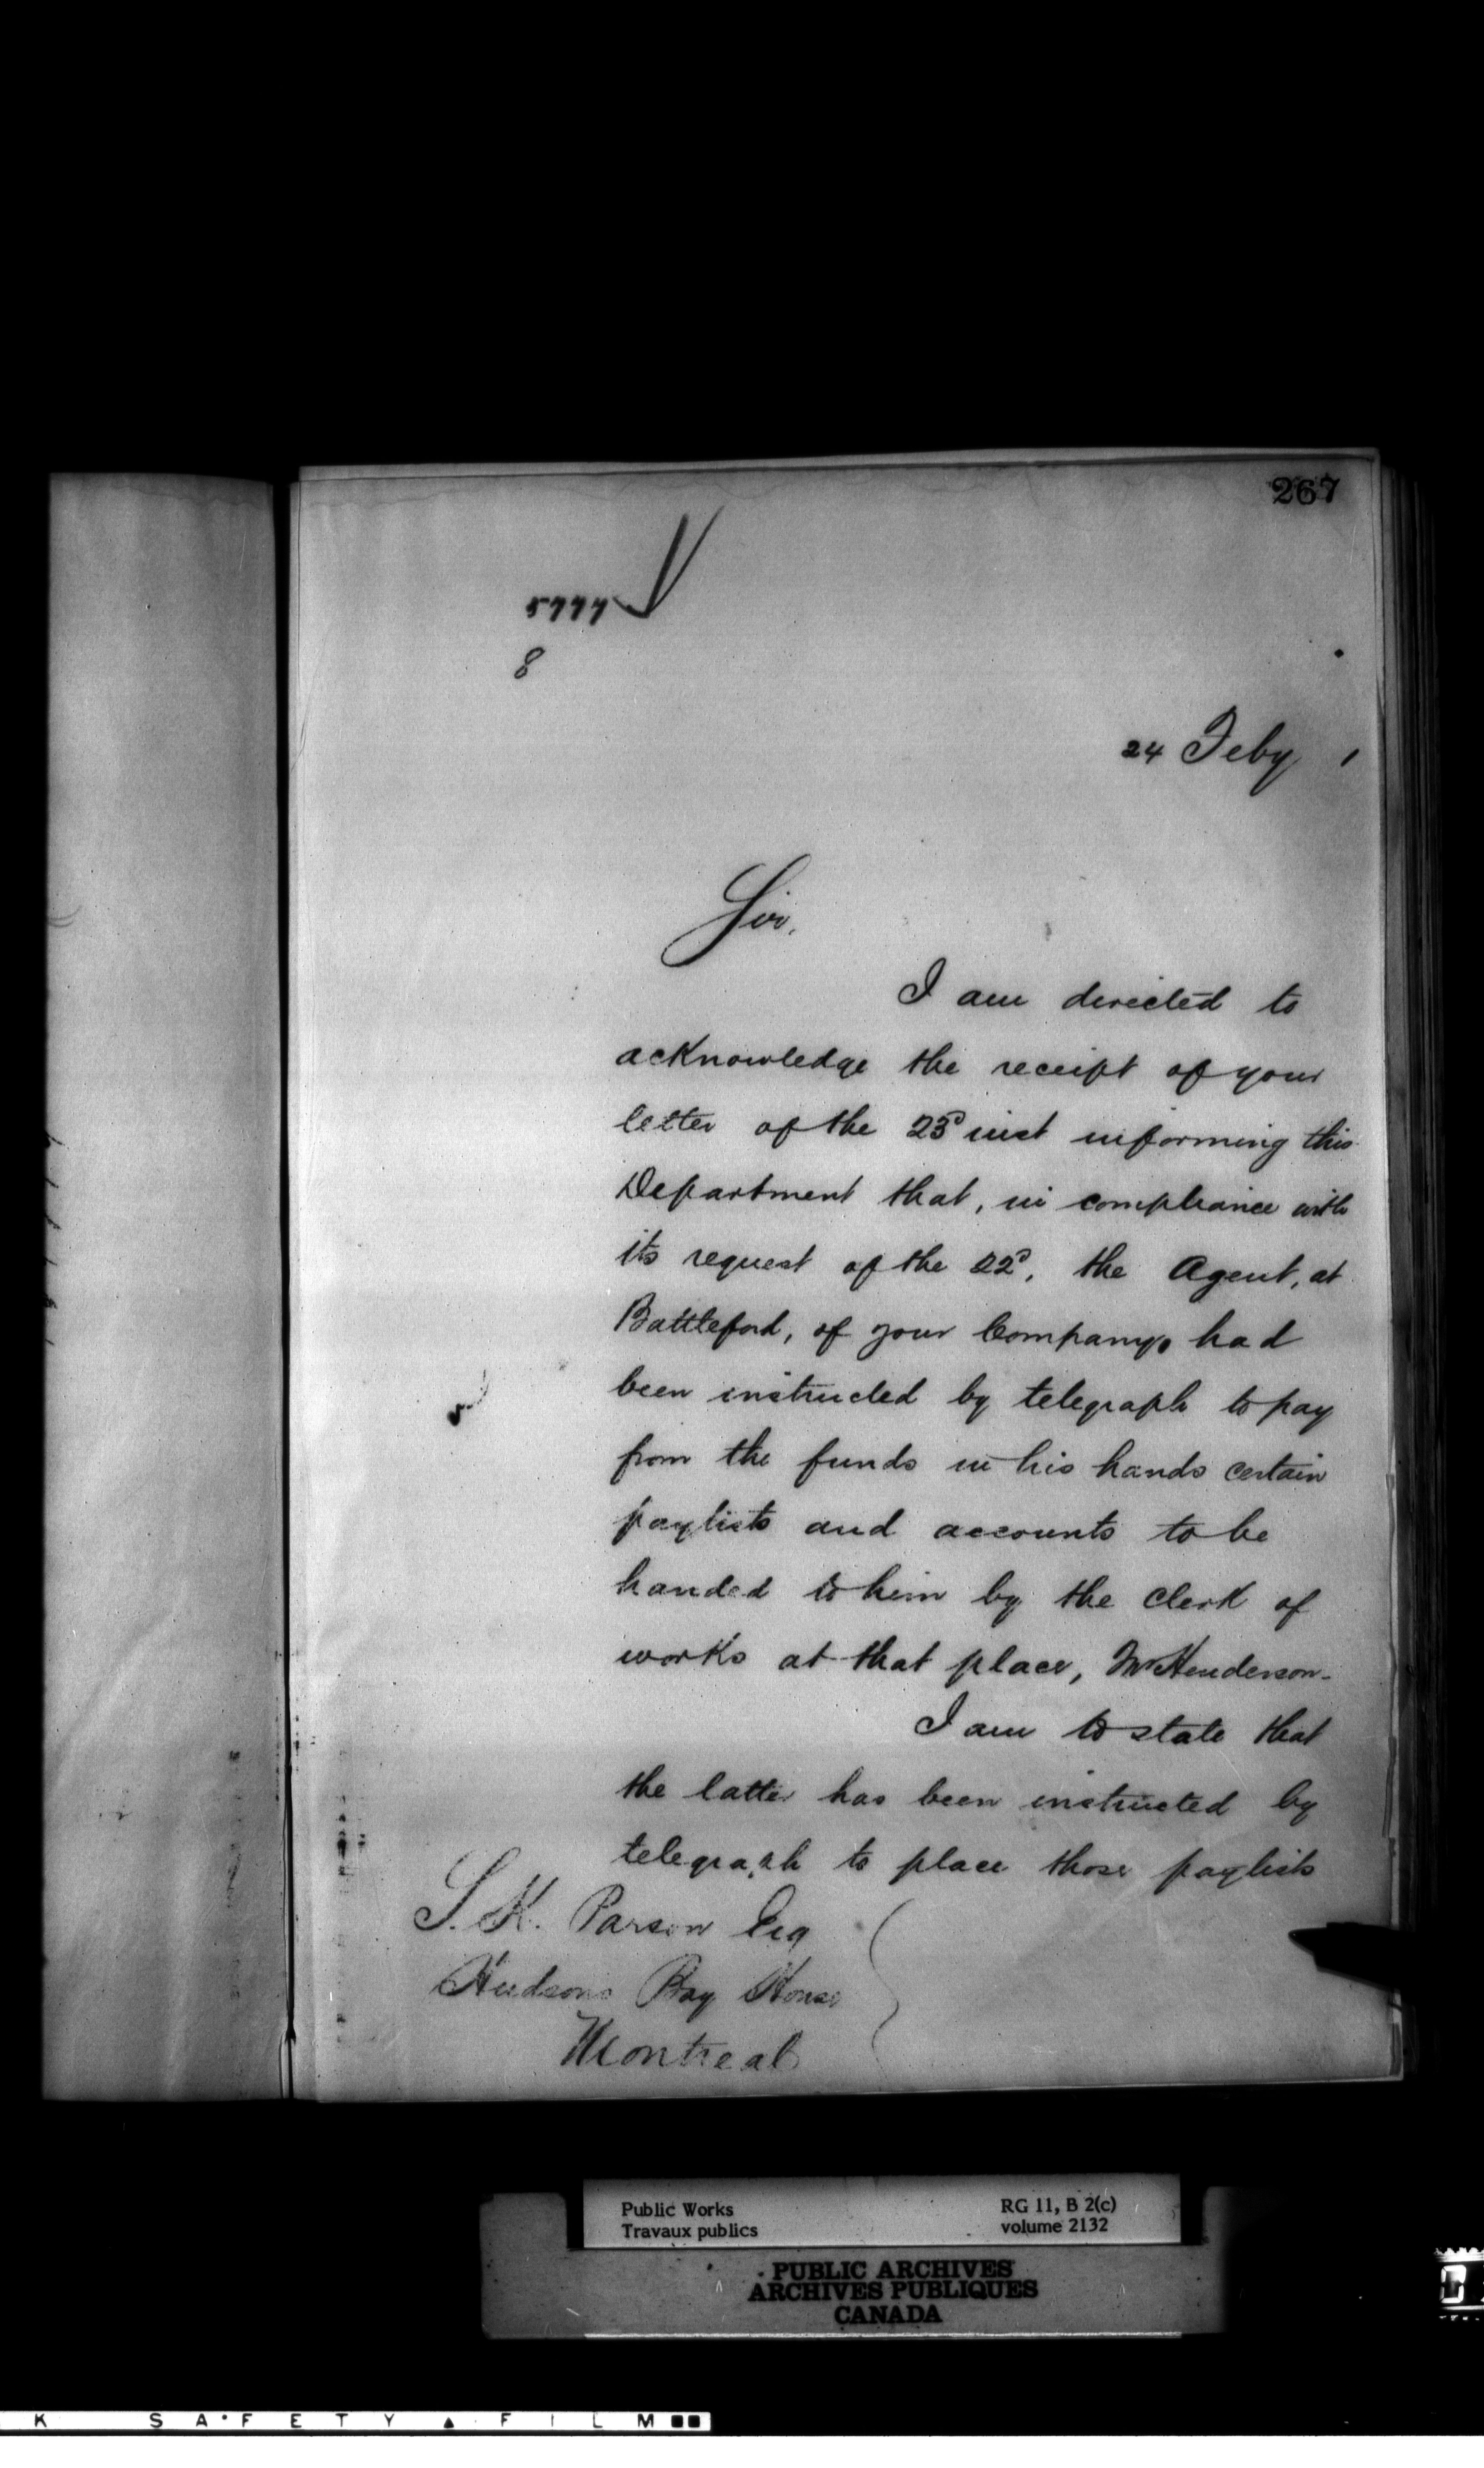 267
5777
8
24 Feby 1
Sir,
I am directed to
acknowledge the receipt of your
letter of the 23d inst informing this
Department that, in compliance with
its request of the 22d, the Agent, at
Battleford, of your Company, had
been instructed by telegraph to pay
from the funds in his hands certain
paylists and accounts to be
handed to him by the Clerk of
works at that place, Mr Henderson.
I am to state that
the latter has been instructed by
telegraph to place those paylists
S. K. Parson Esq
Hudsons Bay House
Montreal
Public Works
Travaux publics
RG 11, B 2(c)
volume 2132
PUBLIC ARCHIVES
ARCHIVES PUBLIQUES
CANADA
K SAFETY FILM